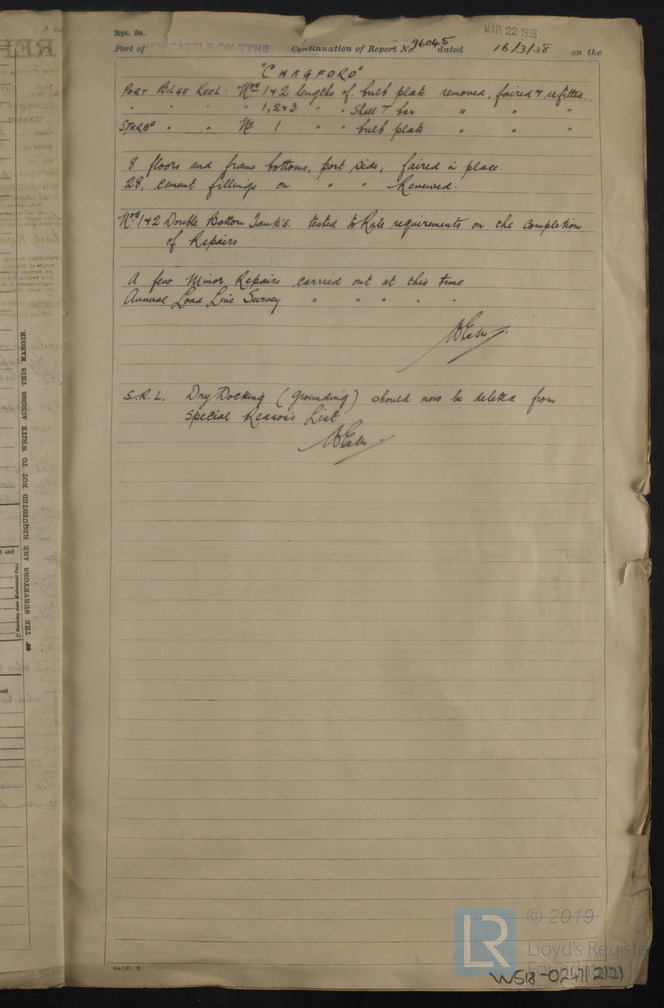 Rpt. 9a.
MAR 22 1938
Port of NEWCASTLE-ON-TYNE Continuation of Report No. 96045 dated 16/3/38 on the
"CHAGFORD"
PORT BILGE KEEL: Nos 1+2 lengths of bulb plate removed, faired & refitted.
" " " 1,2+3 " " Shell T bar " " "
STARBD " " No 1 " " bulb plate " " "
8 floors and frame bottoms, port side, faired in place.
28, cement fillings on " " Renewed.
Nos 1+2 Double Bottom Tanks. tested to Rule requirements on the completion
of Repairs
A few Minor Repairs carried out at this time
Annual Load Line Survey " " " " "
S.R.L. Dry Docking (Grounding) should now be deleted from
Special Reasons List
THE SURVEYORS ARE REQUESTED NOT TO WRITE ACROSS THIS MARGIN.
© 2019
LR
Lloyd's Register
W518-0247(2/2)